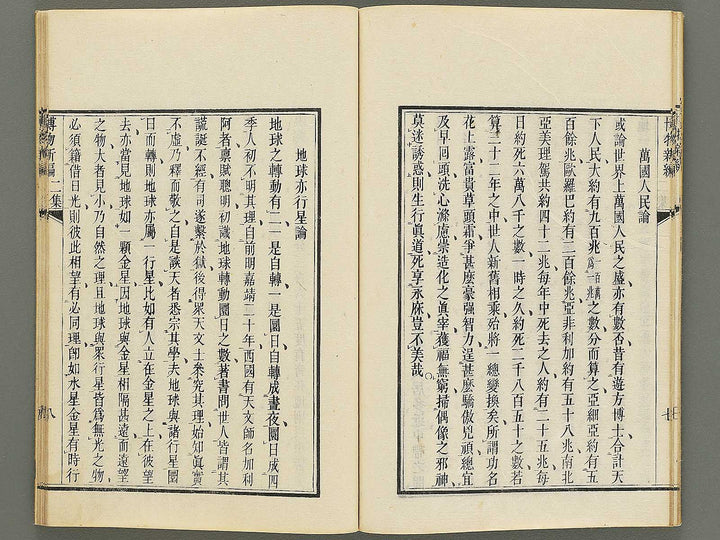 萬國人民論
或論世界上萬國人民之盛亦有數否昔有遊方博士合計天
下人民大約有九百兆一百萬爲一兆之數分而算之亞細亞約有五
百餘兆歐羅巴約有二百餘兆亞非利加約有五十八兆南北
亞美理駕共約四十二兆每年中死去之人約有二十五兆每
日約死六萬八千之數一時之久約死二千八百五十之數若
算三十二年之中世人新舊相乘殆將一總變換矣所謂功名
花上露富貴草頭霜爭甚麼豪强智力逞甚麼驕傲兇頑總宜
及早回頭洗心滌慮崇造化之眞宰獲福無窮掃偶像之邪神
莫迷誘惑則生行眞道死享永庥豈不美哉
七
地球亦行星論
地球之轉動有二一是自轉一是圜日自轉成晝夜圜日成四
季人初不明其理自前明嘉靖二十年西國有天文師名加利
阿者稟賦聰明初識地球轉動圜日之數著書問世人皆謂其
謊誕不經有司遂繫於獄後得衆天文士叅究其理始知眞實
不虛乃釋而敬之自是談天者悉宗其學夫地球與諸行星圜
日而轉則地球亦屬一行星比如有人立在金星之上在彼望
去亦當見地球如一顆金星因地球與金星相隔甚遠而遠望
之物大者見小乃自然之理且地球與衆行星皆爲無光之物
必須籍借日光則彼此相望有必同理卽如水星金星有時行
博物新編
二集
八